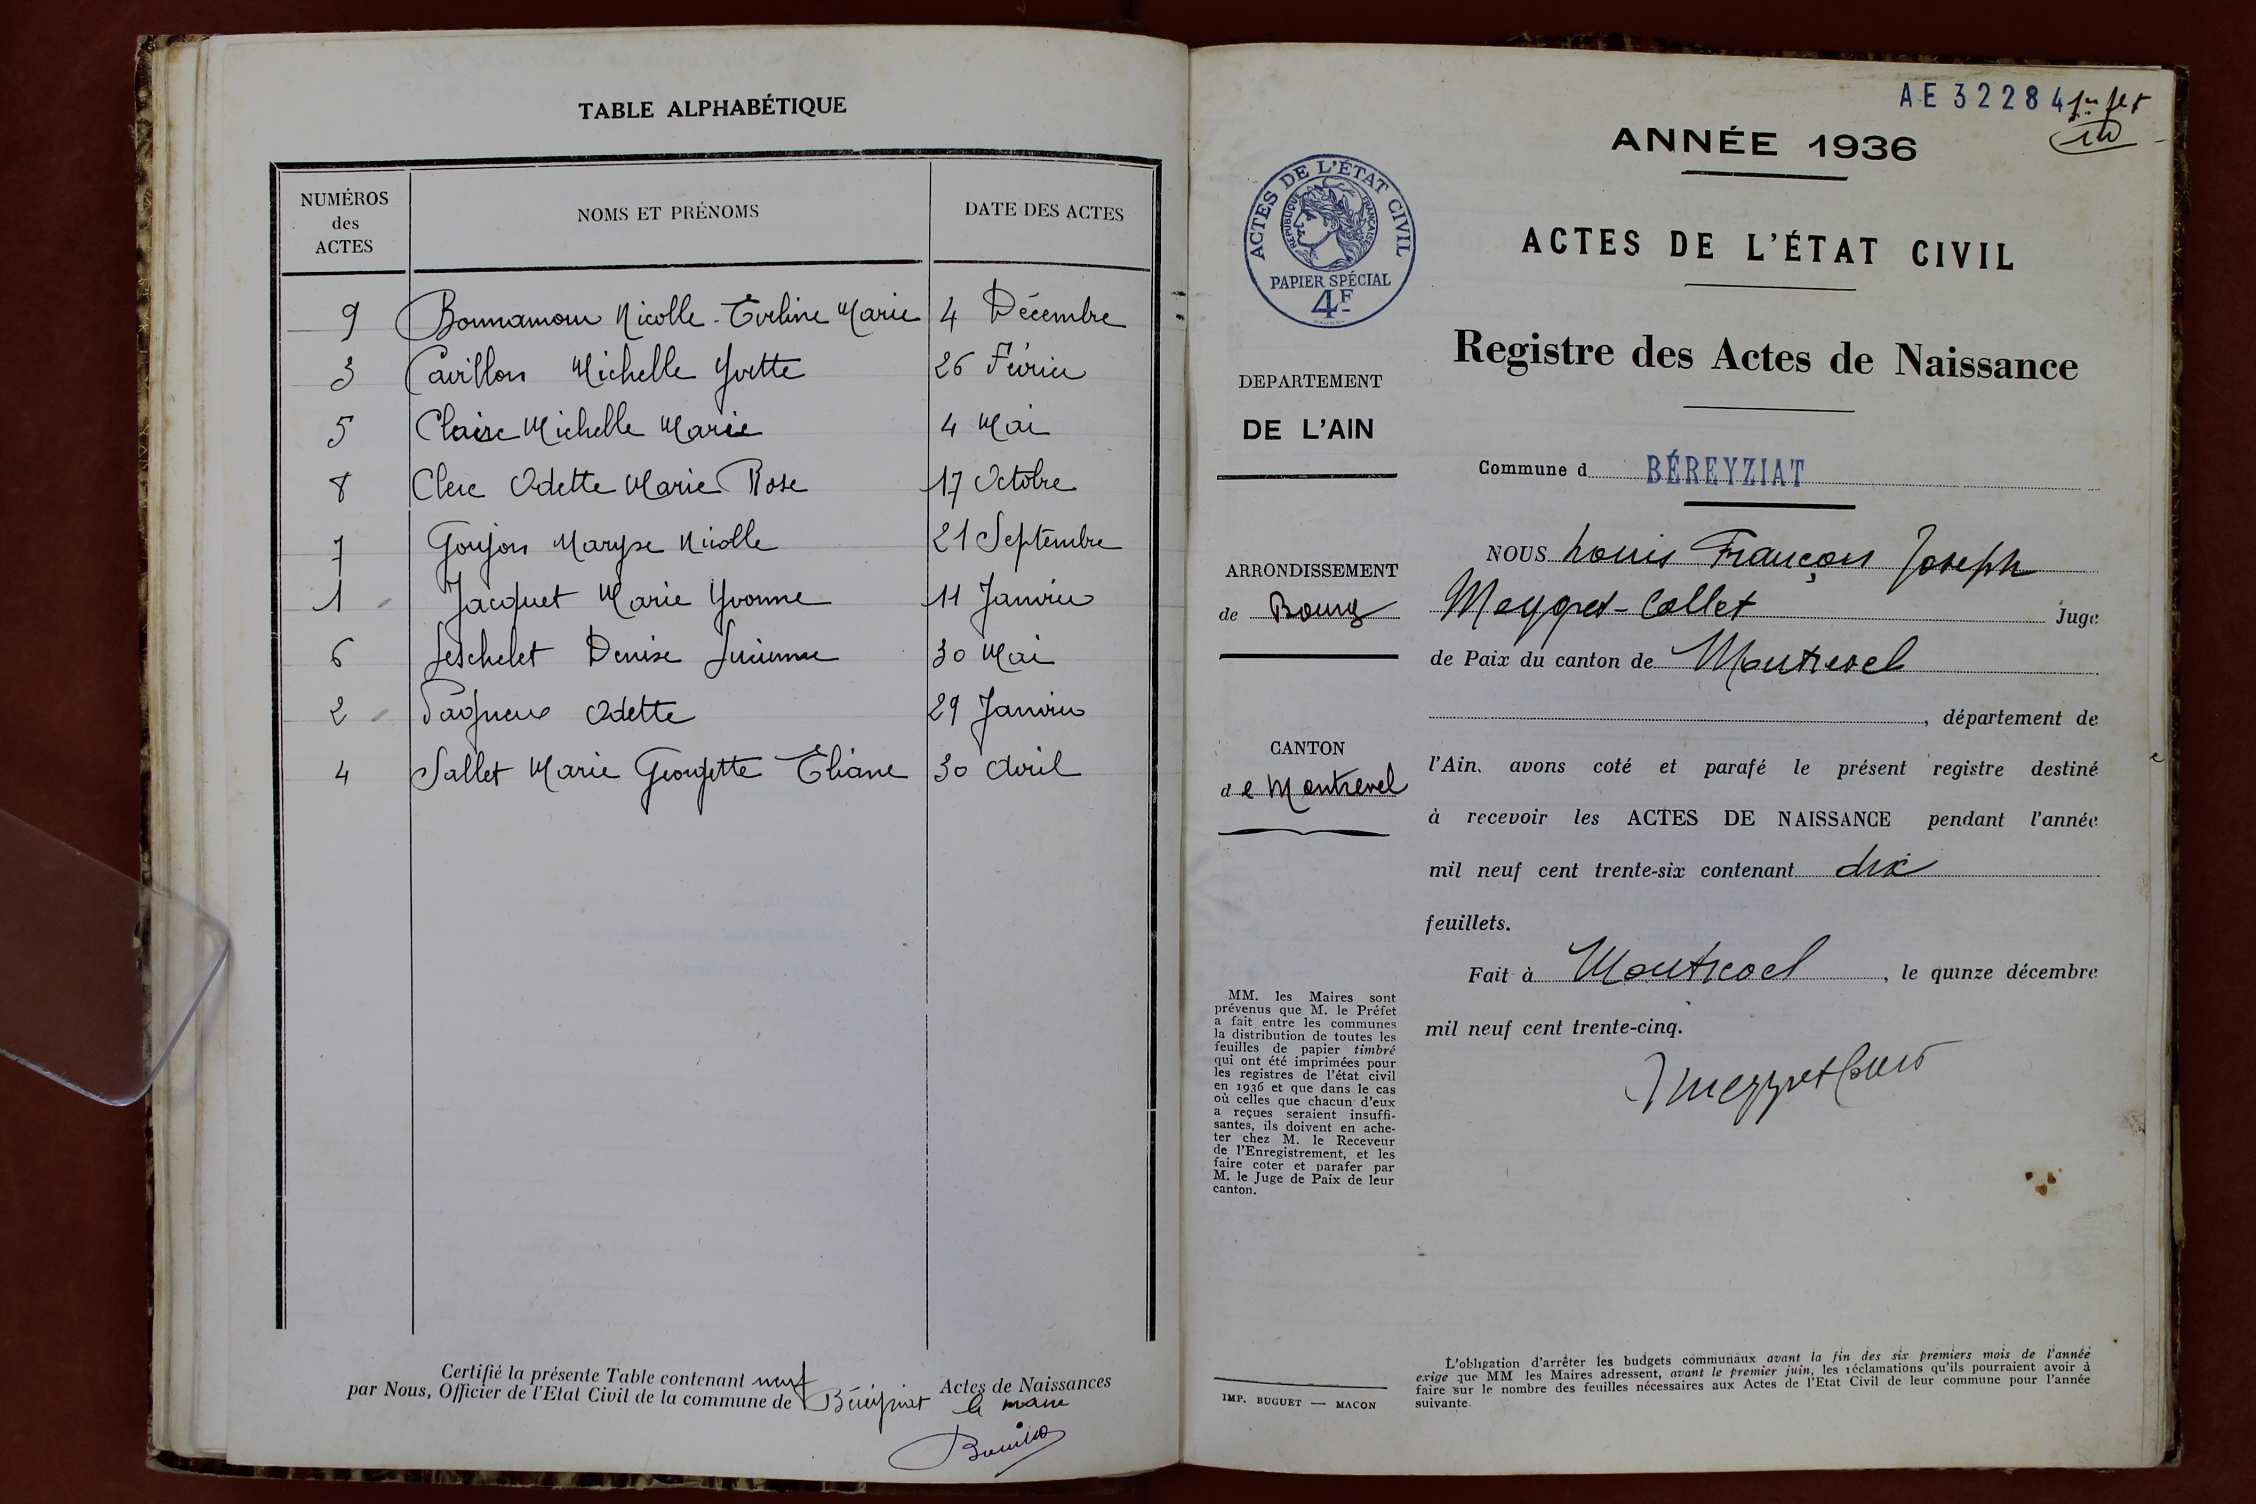 TABLE ALPHABÉTIQUE
NUMÉROS
des
ACTES
NOMS ET PRÉNOMS
DATE DES ACTES
9 Bonnamour Nicolle-Eveline Marie 4 Décembre
3 Cavillon Michelle Yvette 26 Février
5 Claire Michelle Marie 4 Mai
8 Clerc Odette Marie Rose 17 Octobre
7 Goujon Maryse Nicolle 21 Septembre
1 Jacquet Marie Yvonne 11 Janvier
6 Leschelet Denise Lucienne 30 Mai
2 Pagneux Odette 29 Janvier
4 Sallet Marie Georgette Eliane 30 Avril
Certifié la présente Table contenant neuf Actes de Naissances
par Nous, Officier de l'Etat Civil de la commune de Béréyziat le maire
AE 32284
ANNÉE 1936
ACTES DE L'ÉTAT CIVIL
RÉPUBLIQUE FRANÇAISE
PAPIER SPÉCIAL
4F
ACTES DE L'ÉTAT CIVIL
Registre des Actes de Naissance
DEPARTEMENT
DE L'AIN
ARRONDISSEMENT
de Bourg
CANTON
de Montrevel
MM. les Maires sont
prévenus que M. le Préfet
a fait entre les communes
la distribution de toutes les
feuilles de papier timbré
qui ont été imprimées pour
les registres de l'état civil
en 1936 et que dans le cas
où celles que chacun d'eux
a reçues seraient insuffi-
santes, ils doivent en ache-
ter chez M. le Receveur
de l'Enregistrement, et les
faire coter et parafer par
M. le Juge de Paix de leur
canton.
IMP. BUGUET — MACON
Commune d BÉREYZIAT
NOUS Louis François Joseph
Meygret-Collet Juge
de Paix du canton de Montrevel
, département de
l'Ain, avons coté et parafé le présent registre destiné
à recevoir les ACTES DE NAISSANCE pendant l'année
mil neuf cent trente-six contenant dix
feuillets.
Fait à Montrevel, le quinze décembre
mil neuf cent trente-cinq.
L'obligation d'arrêter les budgets communaux avant la fin des six premiers mois de l'année
exige que MM les Maires adressent, avant le premier juin, les réclamations qu'ils pourraient avoir à
faire sur le nombre des feuilles nécessaires aux Actes de l'Etat Civil de leur commune pour l'année
suivante.